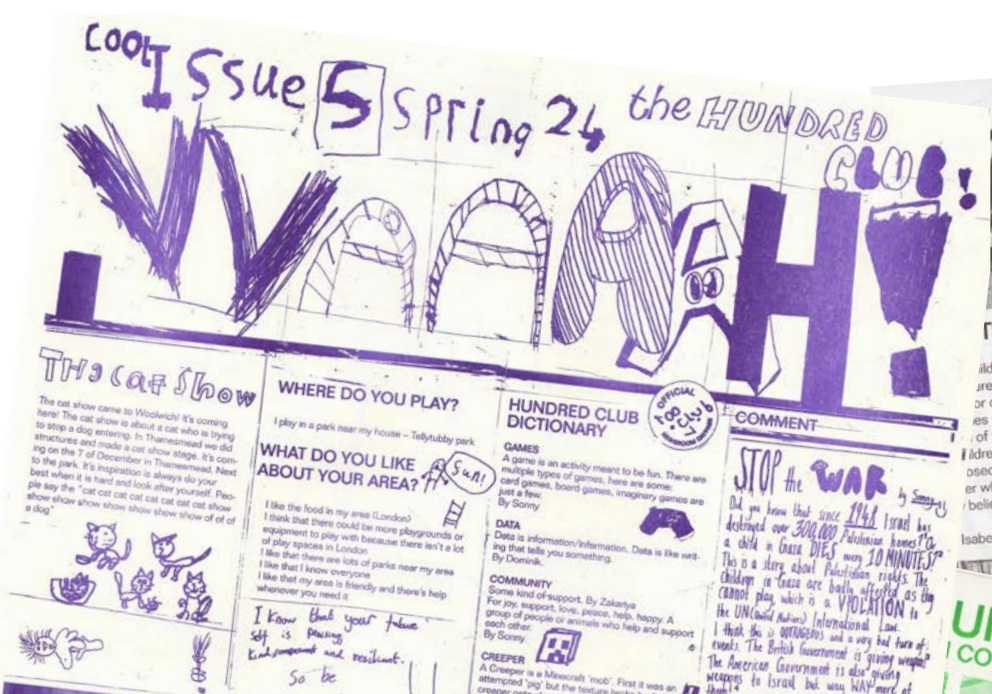 COOL
Issue 5 Spring 24
the HUNDRED
CLUB!
WAAAAH!
THe Cat Show
The cat show came to Woolwich! It's coming
here! The cat show is about a cat who is trying
to stop a dog entering. In Thamesmead we did
structures and made a cat show stage. It's com-
ing on the 7 of December in Thamesmead. Next
to the park. It's inspiration is always do your
best when it is hard and look after yourself. Peo-
ple say the "cat cat cat cat cat cat cat show
show show show show show show of of of
a dog"
WHERE DO YOU PLAY?
I play in a park near my house – Tellytubby park
WHAT DO YOU LIKE
ABOUT YOUR AREA?
Sun!
I like the food in my area (London)
I think that there could be more playgrounds or
equipment to play with because there isn't a lot
of play spaces in London
I like that there are lots of parks near my area
I like that I know everyone
I like that my area is friendly and there's help
whenever you need it
I know that your future
self is
kind, and resilient.
So be
HUNDRED CLUB
DICTIONARY
OFFICIAL
GAMES
A game is an activity meant to be fun. There are
multiple types of games, here are some:
card games, board games, imaginary games are
just a few.
By Sonny
DATA
Data is information/information. Data is like writ-
ing that tells you something.
By Dominik.
COMMUNITY
Some kind of support. By Zakariya
For joy, support, love, peace, help, happy. A
group of people or animals who help and support
each other.
By Sonny
CREEPER
A Creeper is a Minecraft 'mob'. First it was an
attempted 'pig' but the texture
creeper
COMMENT
STOP the WAR
by Sonny
Did you know that since 1948 Israel has
destroyed over 300,000 Palestinian homes? Or
a child in Gaza DIES every 10 MINUTES?
This is a story about Palestinian rights. The
children in Gaza are badly affected as they
cannot play which is a VIOLATION to
the UN (United Nations) International Law.
I think this is OUTRAGEOUS and a very bad turn of
events. The British Government is giving weapons
The American Government is also giving
weapons to Israel but way WAY more of
them!